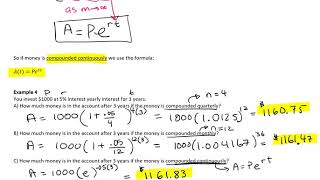 as m→∞
A = Pe^rt
So if money is compounded continuously we use the formula:
A(t) = Pe^rt
Example 4 P r t
You invest $1000 at 5% interest yearly interest for 3 years.
A) How much money is in the account after 3 years if the money is compounded quarterly? n = 4
A = 1000(1 + .05/4)^4(3) = 1000(1.0125)^12 = $1160.75
B) How much money is in the account after 3 years if the money is compounded monthly? n = 12
A = 1000(1 + .05/12)^12(3) = 1000(1.004167)^36 = $1161.47
C) How much money is in the account after 3 years if the money is compounded continuously?
A = 1000(e)^.05(3) = $1161.83 A = Pe^rt